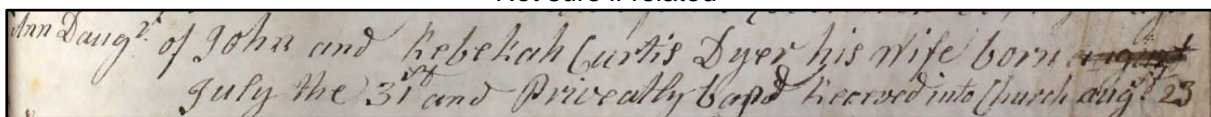 Not sure if related
Ann Daugr. of John and Rebekah Curtis Dyer his Wife born august
July the 31st and Priveatly bapd Receved into Church augst 23